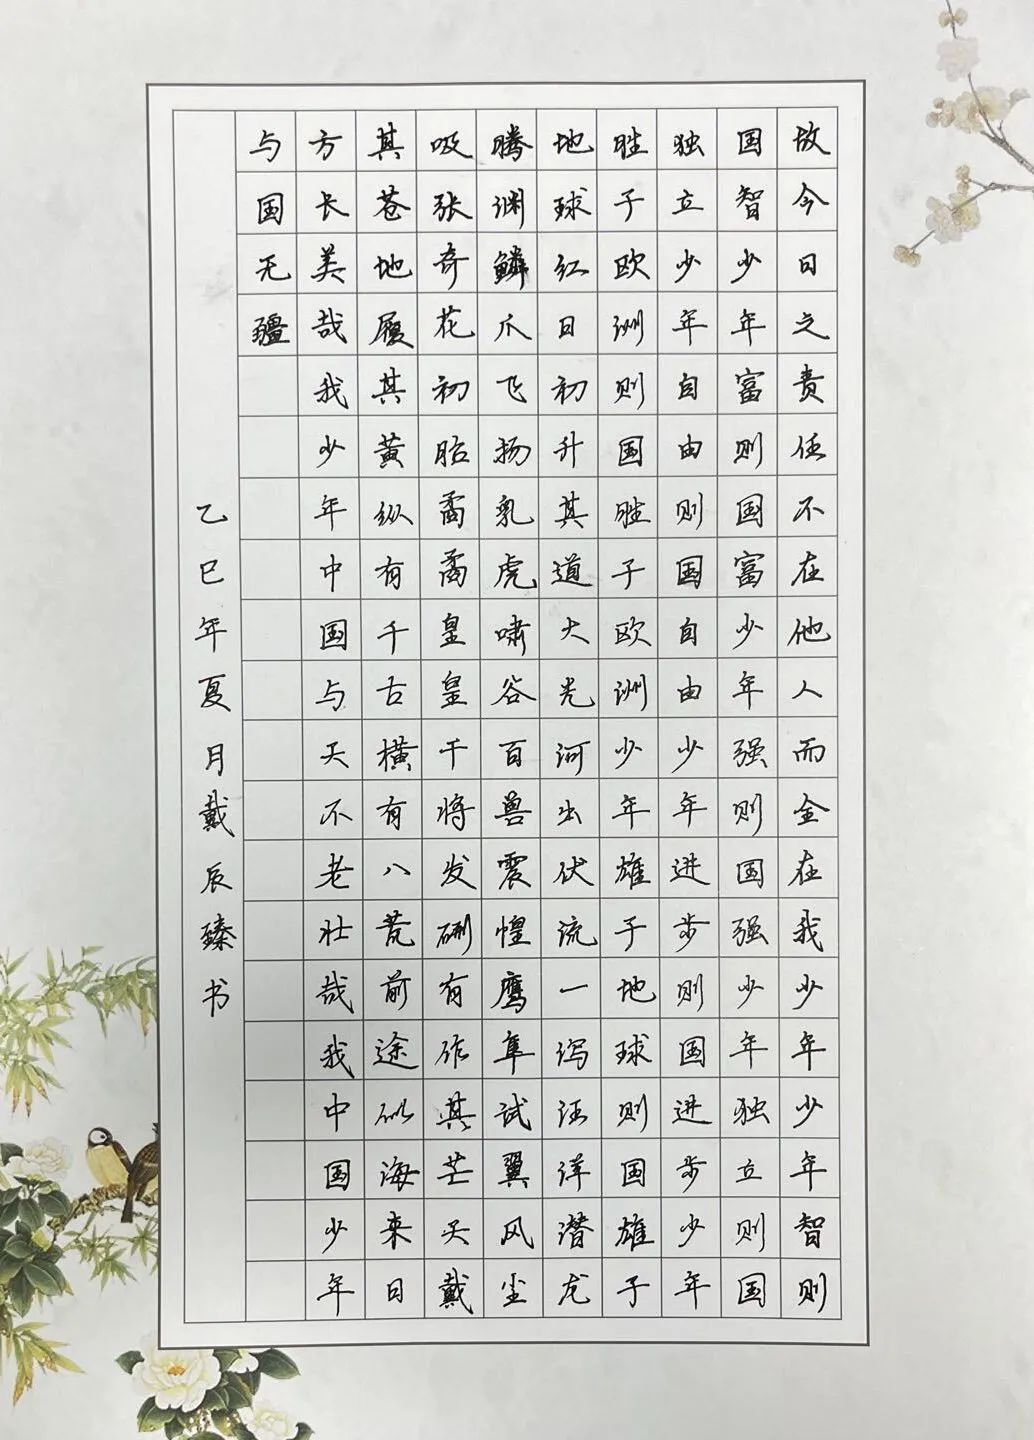 故今日之责任不在他人而全在我少年少年智则
国智少年富则国富少年强则国强少年独立则国
独立少年自由则国自由少年进步则国进步少年
胜于欧洲则国胜于欧洲少年雄于地球则国雄于
地球红日初升其道大光河出伏流一泻汪洋潜龙
腾渊鳞爪飞扬乳虎啸谷百兽震惶鹰隼试翼风尘
吸张奇花初胎矞矞皇皇干将发硎有作其芒天戴
其苍地履其黄纵有千古横有八荒前途似海来日
方长美哉我少年中国与天不老壮哉我中国少年
与国无疆
乙巳年夏月戴辰臻书